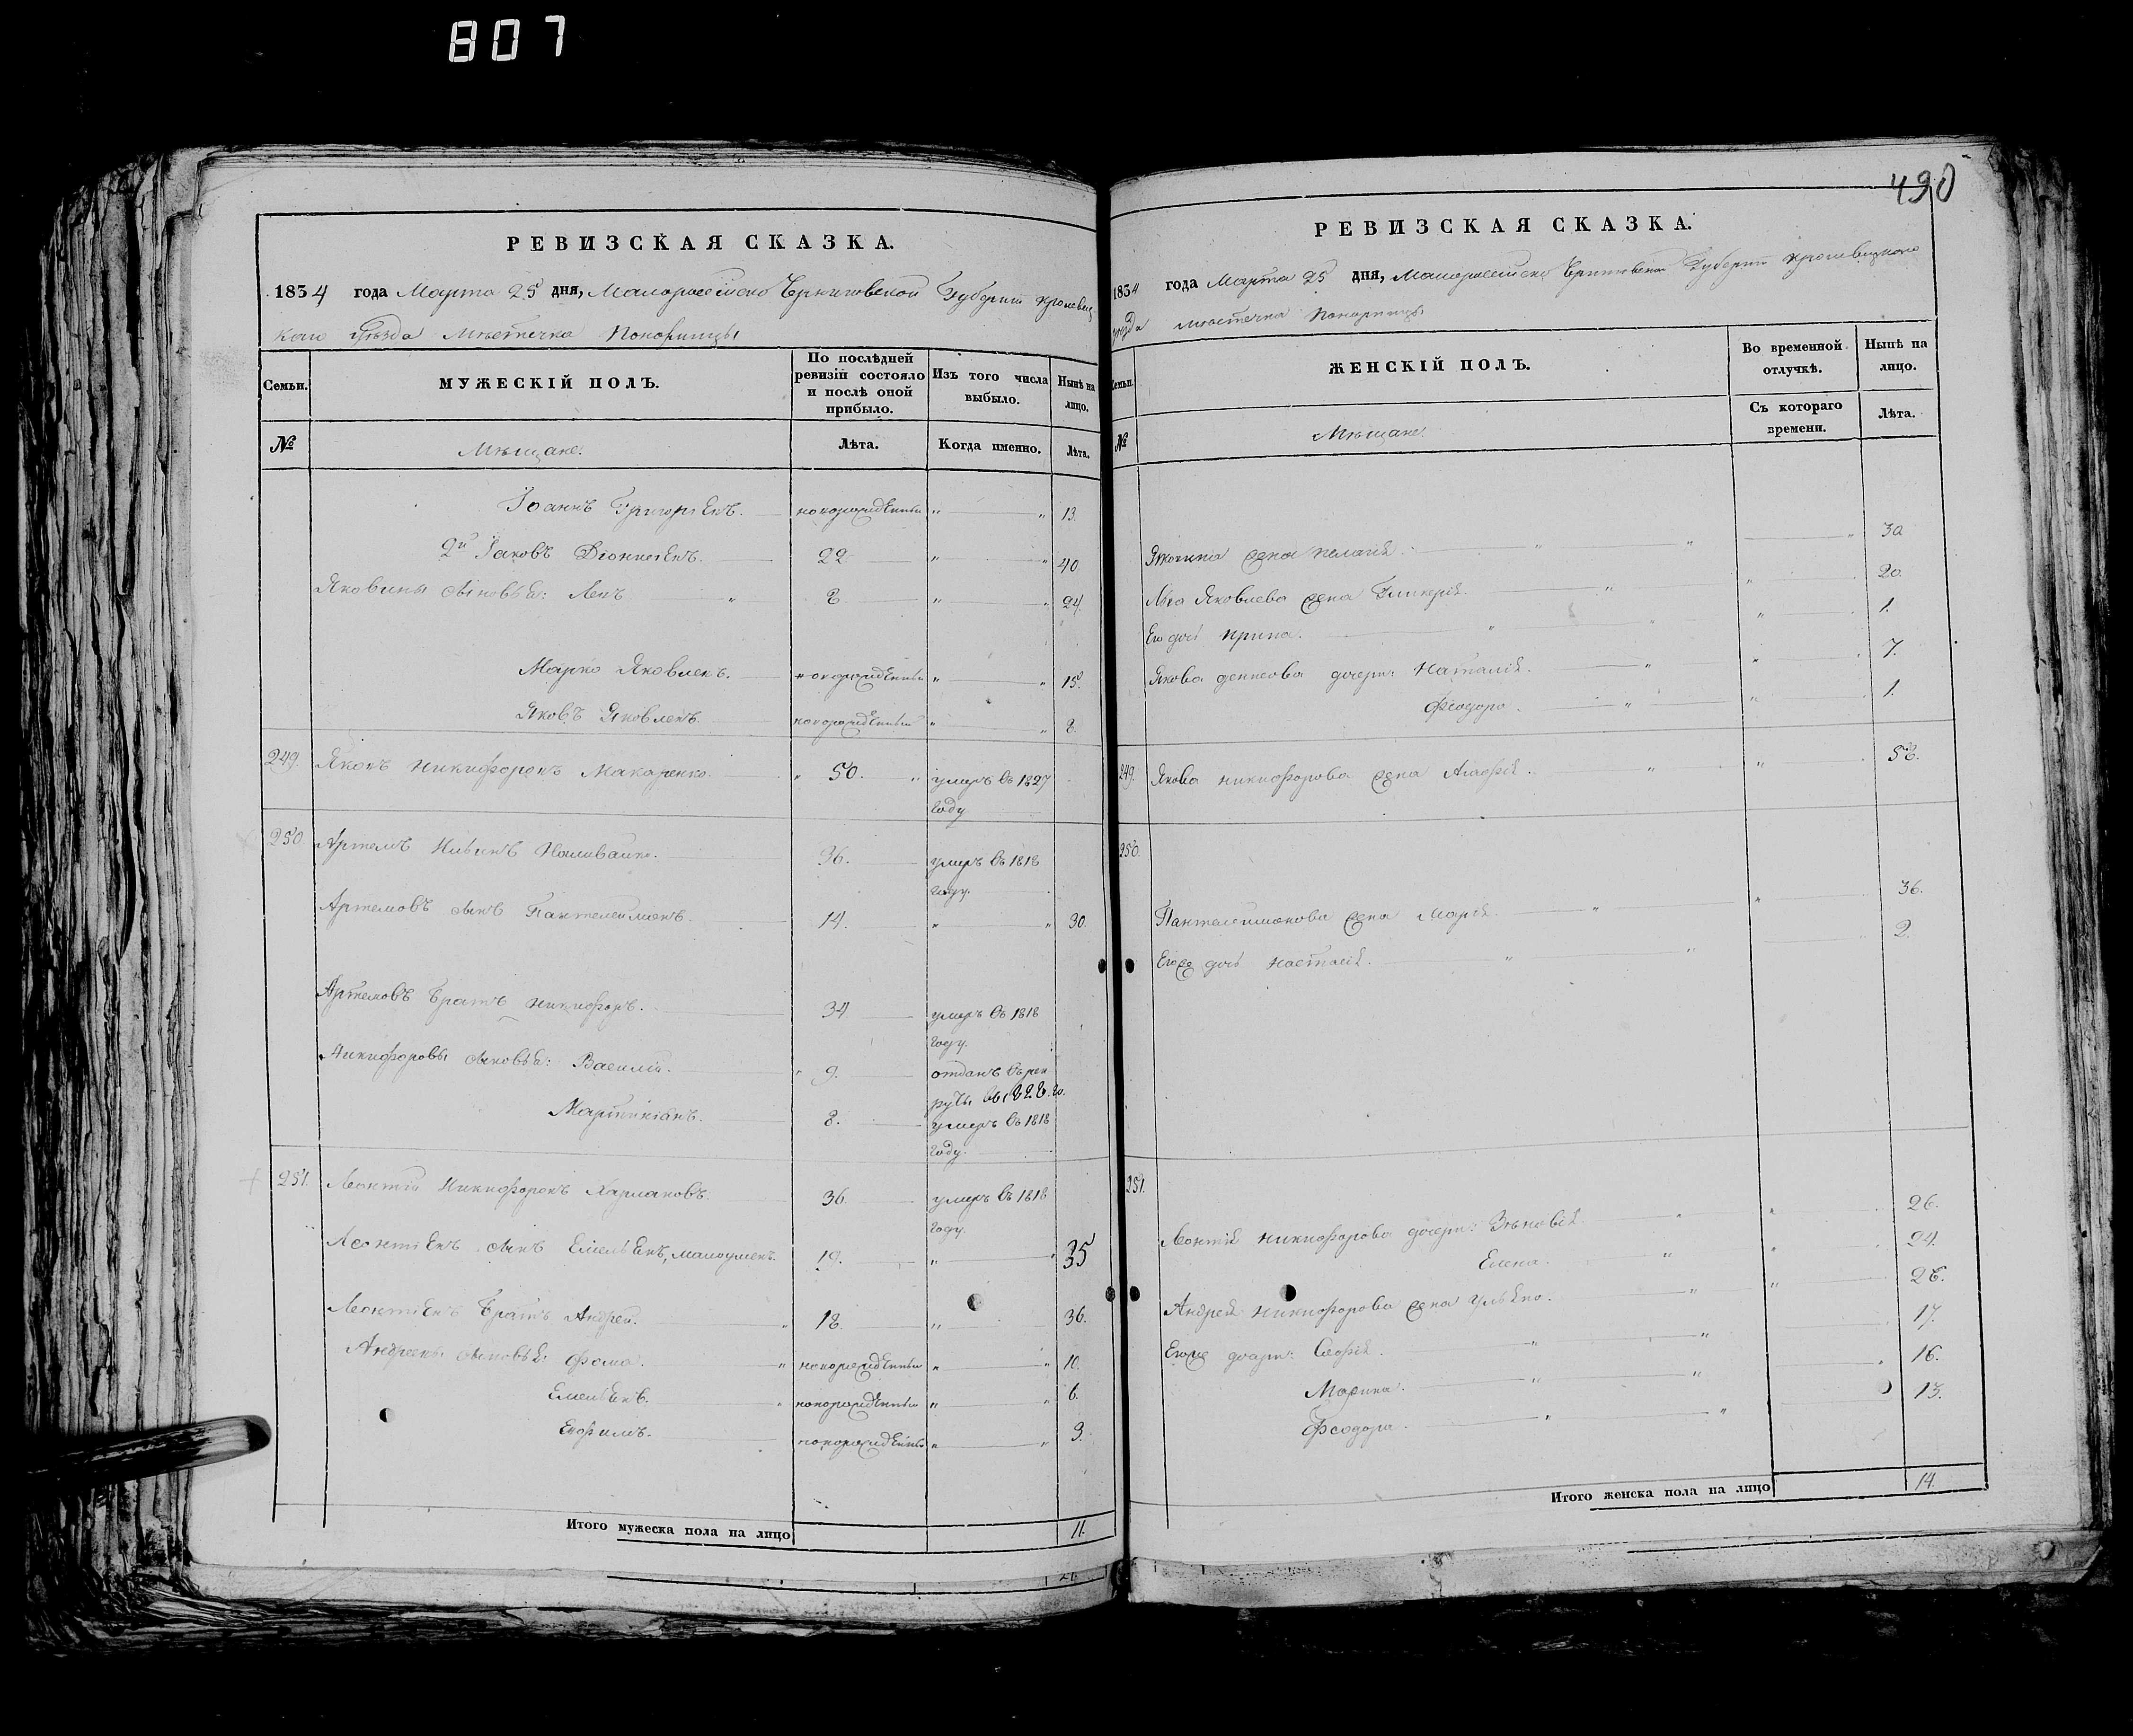 807
490
РЕВИЗСКАЯ СКАЗКА.
1834 года Марта 25 дня, Малоросийско Черниговской Губернии Кролевец
кого уѣзда Мѣстечка Понорницы
Семьи.
МУЖЕСКІЙ ПОЛЪ.
По послѣдней ревизіи состояло и послѣ оной прибыло.
Изъ того числа выбыло.
Нынѣ на лицо.
№
Мѣщане.
Лѣта.
Когда именно.
Лѣта.
Іоаннъ Григорьевъ. новорожденный " " 13.
2й Іаковъ Діонисіевъ. 22 " " 40
Яковины сыновья: Левъ " 8 " " 24.
Марко Яковлевъ. новорожденный " " 15.
Яковъ Яковлевъ. новорожденный " " 8.
249. Яковъ Никифоровъ Макаренко. " 50. " умеръ въ 1827
году
250 Артемъ Наливайко. 36. умеръ въ 1818
году.
Артемовъ сынъ Пантелеймонъ. 14. " " 30.
Артемовъ братъ Никифоръ. 34 умеръ въ 1818
году.
Никифоровы сыновья: Василій. 9. отданъ въ рек
руты в 1828. го.
Мартиніанъ. 8. умеръ въ 1818
году.
251. Леонтій Никифоровъ 36. умеръ въ 1818
году.
Леонтіевъ сынъ Емельянъ, малоумевъ. 19. " " 35
Леонтіевъ братъ Андрей. " 18. " 36.
Андреевы сыновья Фома. " новорожденный " " 10.
Емельянъ. " новорожденный " " 6.
Ефимъ. новорожденный " " 3.
Итого мужеска пола на лицо 11.
21.
РЕВИЗСКАЯ СКАЗКА.
1834 года Марта 25 дня, Малоросийско Черниговской Губернии Кролевецкаго
уѣзда мѣстечка Понорницы
Семьи.
ЖЕНСКІЙ ПОЛЪ.
Во временной отлучкѣ.
Нынѣ на лицо.
№
Мѣщане.
Съ котораго времени.
Лѣта.
жена Пелагія " " " 30
Льва Яковлева жена Гликерія. " " 20.
Его дочь Ирина. " " " 1.
Якова Денисова дочери: Наталія. " " 7.
Феодора. " " 1.
249. Якова Никифорова жена Агафія. " " 58.
250.
Пантелеймонова жена Марія. " " 36.
Егоже дочь Настасія. " " 2.
251.
Леонтія Никифорова дочери: Зѣновія. " " 26.
Елена. " " 24.
Андрея Никифорова жена Ульяна. " "
Егоже дочери: Софія. " " 17.
Марина. " " 16.
Феодора. " " 13.
Итого женска пола на лицо 14.